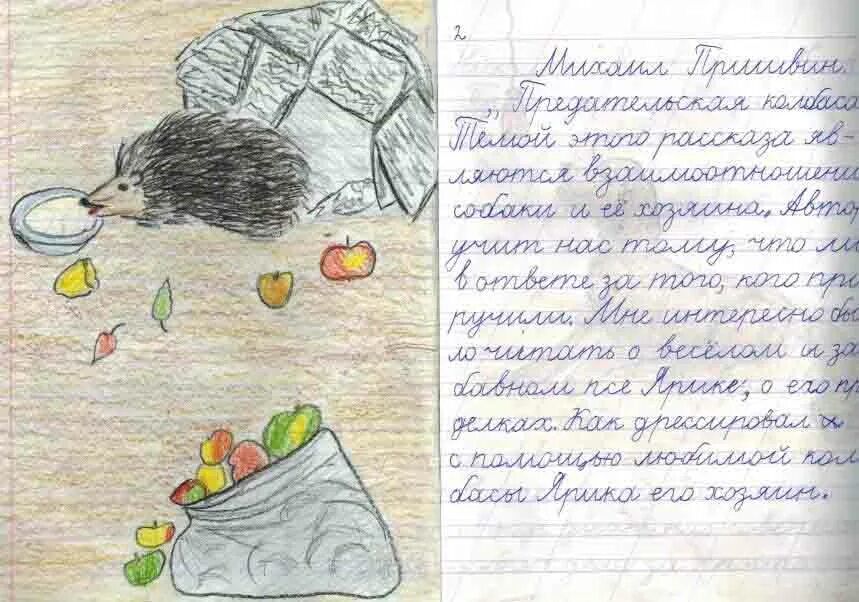 2
Михаил Пришвин.
„Предательская колбаса
Темой этого рассказа яв-
ляются взаимоотношени
собаки и её хозяина. Автор
учит нас тому, что мы
в ответе за того, кого при
ручили. Мне интересно бы
ло читать о весёлом и за
бавном псе Ярике, о его пр
делках. Как дрессировал
с помощью любимой кол
басы Ярика его хозяин.